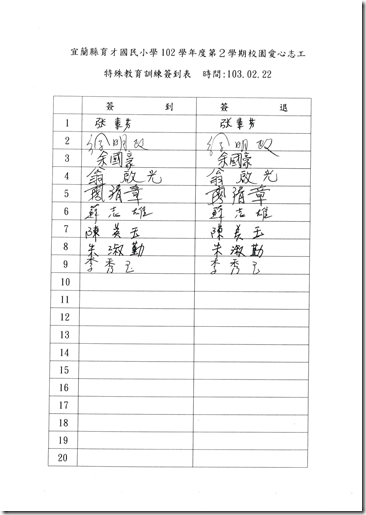 宜蘭縣育才國民小學 102 學年度第 2 學期校園愛心志工
特殊教育訓練簽到表 時間:103.02.22
簽 到 簽 退
1 張 芳 張 芳
2 徐明 徐明
3 余國豪 余國豪
4 翁啟光 翁啟光
5 章 章
6 蘇志雄 蘇志雄
7 陳美玉 陳美玉
8 朱淑勤 朱淑勤
9 李秀玉 李秀玉
10
11
12
13
14
15
16
17
18
19
20